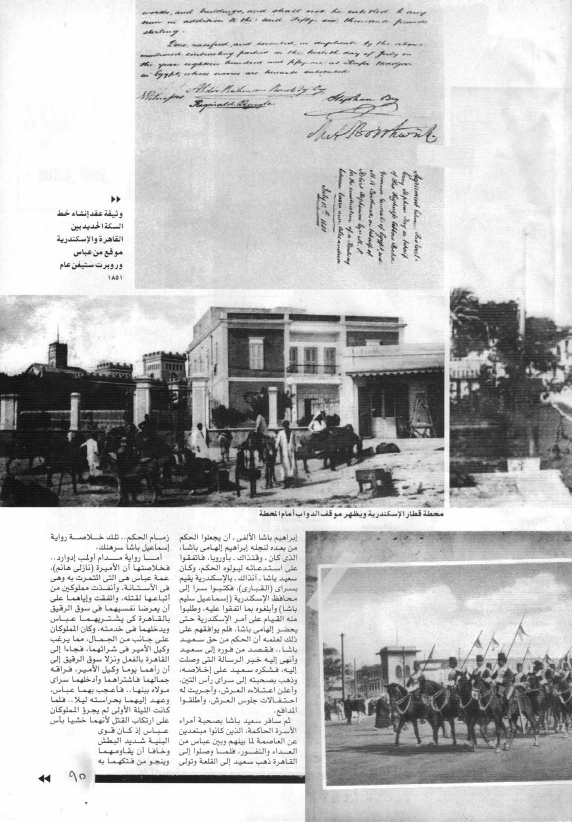 words, and buildings, and shall not be entitled to any
sum in addition to the said Fifty six thousand pounds
sterling.
Done, ratified and executed, in duplicate by the above
mentioned contracting parties on the twelfth day of July in
the year eighteen hundred and fifty one at Kafr
in Egypt, whose names are hereunto subscribed
Stephan Bey
July 12th 1851
وثيقة عقد إنشاء خط
السكة الحديد بين
القاهرة والإسكندرية
موقع من عباس
وروبرت ستيفن عام
١٨٥١
محطة قطار الإسكندرية ويظهر موقف الدواب أمام المحطة
إبراهيم باشا الألفى، أن يجعلوا الحكم
من بعده لنجله إبراهيم إلهامى باشا،
الذى كان، وقتذاك، بأوروبا، فاتفقوا
على استدعائه ليولوه الحكم، وكان
سعيد باشا، آنذاك، بالإسكندرية يقيم
بسراى (القبارى)، فكتبوا سرا إلى
محافظ الإسكندرية (إسماعيل سليم
باشا) وأبلغوه بما اتفقوا عليه، وطلبوا
منه القيام على أمر الإسكندرية حتى
يحضر إلهامى باشا، فلم يوافقهم على
ذلك لعلمه أن الحكم من حق سعيد
باشا.. فقصد من فوره إلى سعيد
وأنهى إليه خبر الرسالة التى وصلت
إليه، فشكره سعيد على إخلاصه،
وذهب بصحبته إلى سراى رأس التين،
وأعلن اعتلاءه العرش، وأجريت له
احتفالات جلوس العرش، وأطلقوا
المدافع.
ثم سافر سعيد باشا بصحبة أمراء
الأسرة الحاكمة، الذين كانوا مبتعدين
عن العاصمة لما بينهم وبين عباس من
العداء والنفور، فلما وصلوا إلى
القاهرة ذهب سعيد إلى القلعة وتولى
زمام الحكم.. تلك خلاصة رواية
إسماعيل باشا سرهنك.
أما رواية مدام أولمب إدوارد..
فخلاصتها أن الأميرة (نازلى هانم)،
عمة عباس هى التى ائتمرت به وهى
فى الأستانة، وأنفذت مملوكين من
أتباعها لقتله، واتفقت وإياهما على
أن يعرضا نفسيهما فى سوق الرقيق
بالقاهرة كى يشتريهما عباس
ويدخلهما فى خدمته، وكان المملوكان
على جانب من الجمال، مما يرغب
وكيل الأمير فى شرائهما، فجاءا إلى
القاهرة بالفعل ونزلا سوق الرقيق إلى
أن رآهما يوما وكيل الأمير، فراقه
جمالهما فاشتراهما وأدخلهما سراى
مولاه ببنها.. فأعجب بهما عباس،
وعهد إليهما بحراسته ليلا.. فلما
كانت الليلة الأولى لم يجرؤ المملوكان
على ارتكاب القتل لأنهما خشيا بأس
عباس إذ كان قوى
البنية شديد البطش
وخافا أن يقاومهما
وينجو من فتكهما به
٩٠